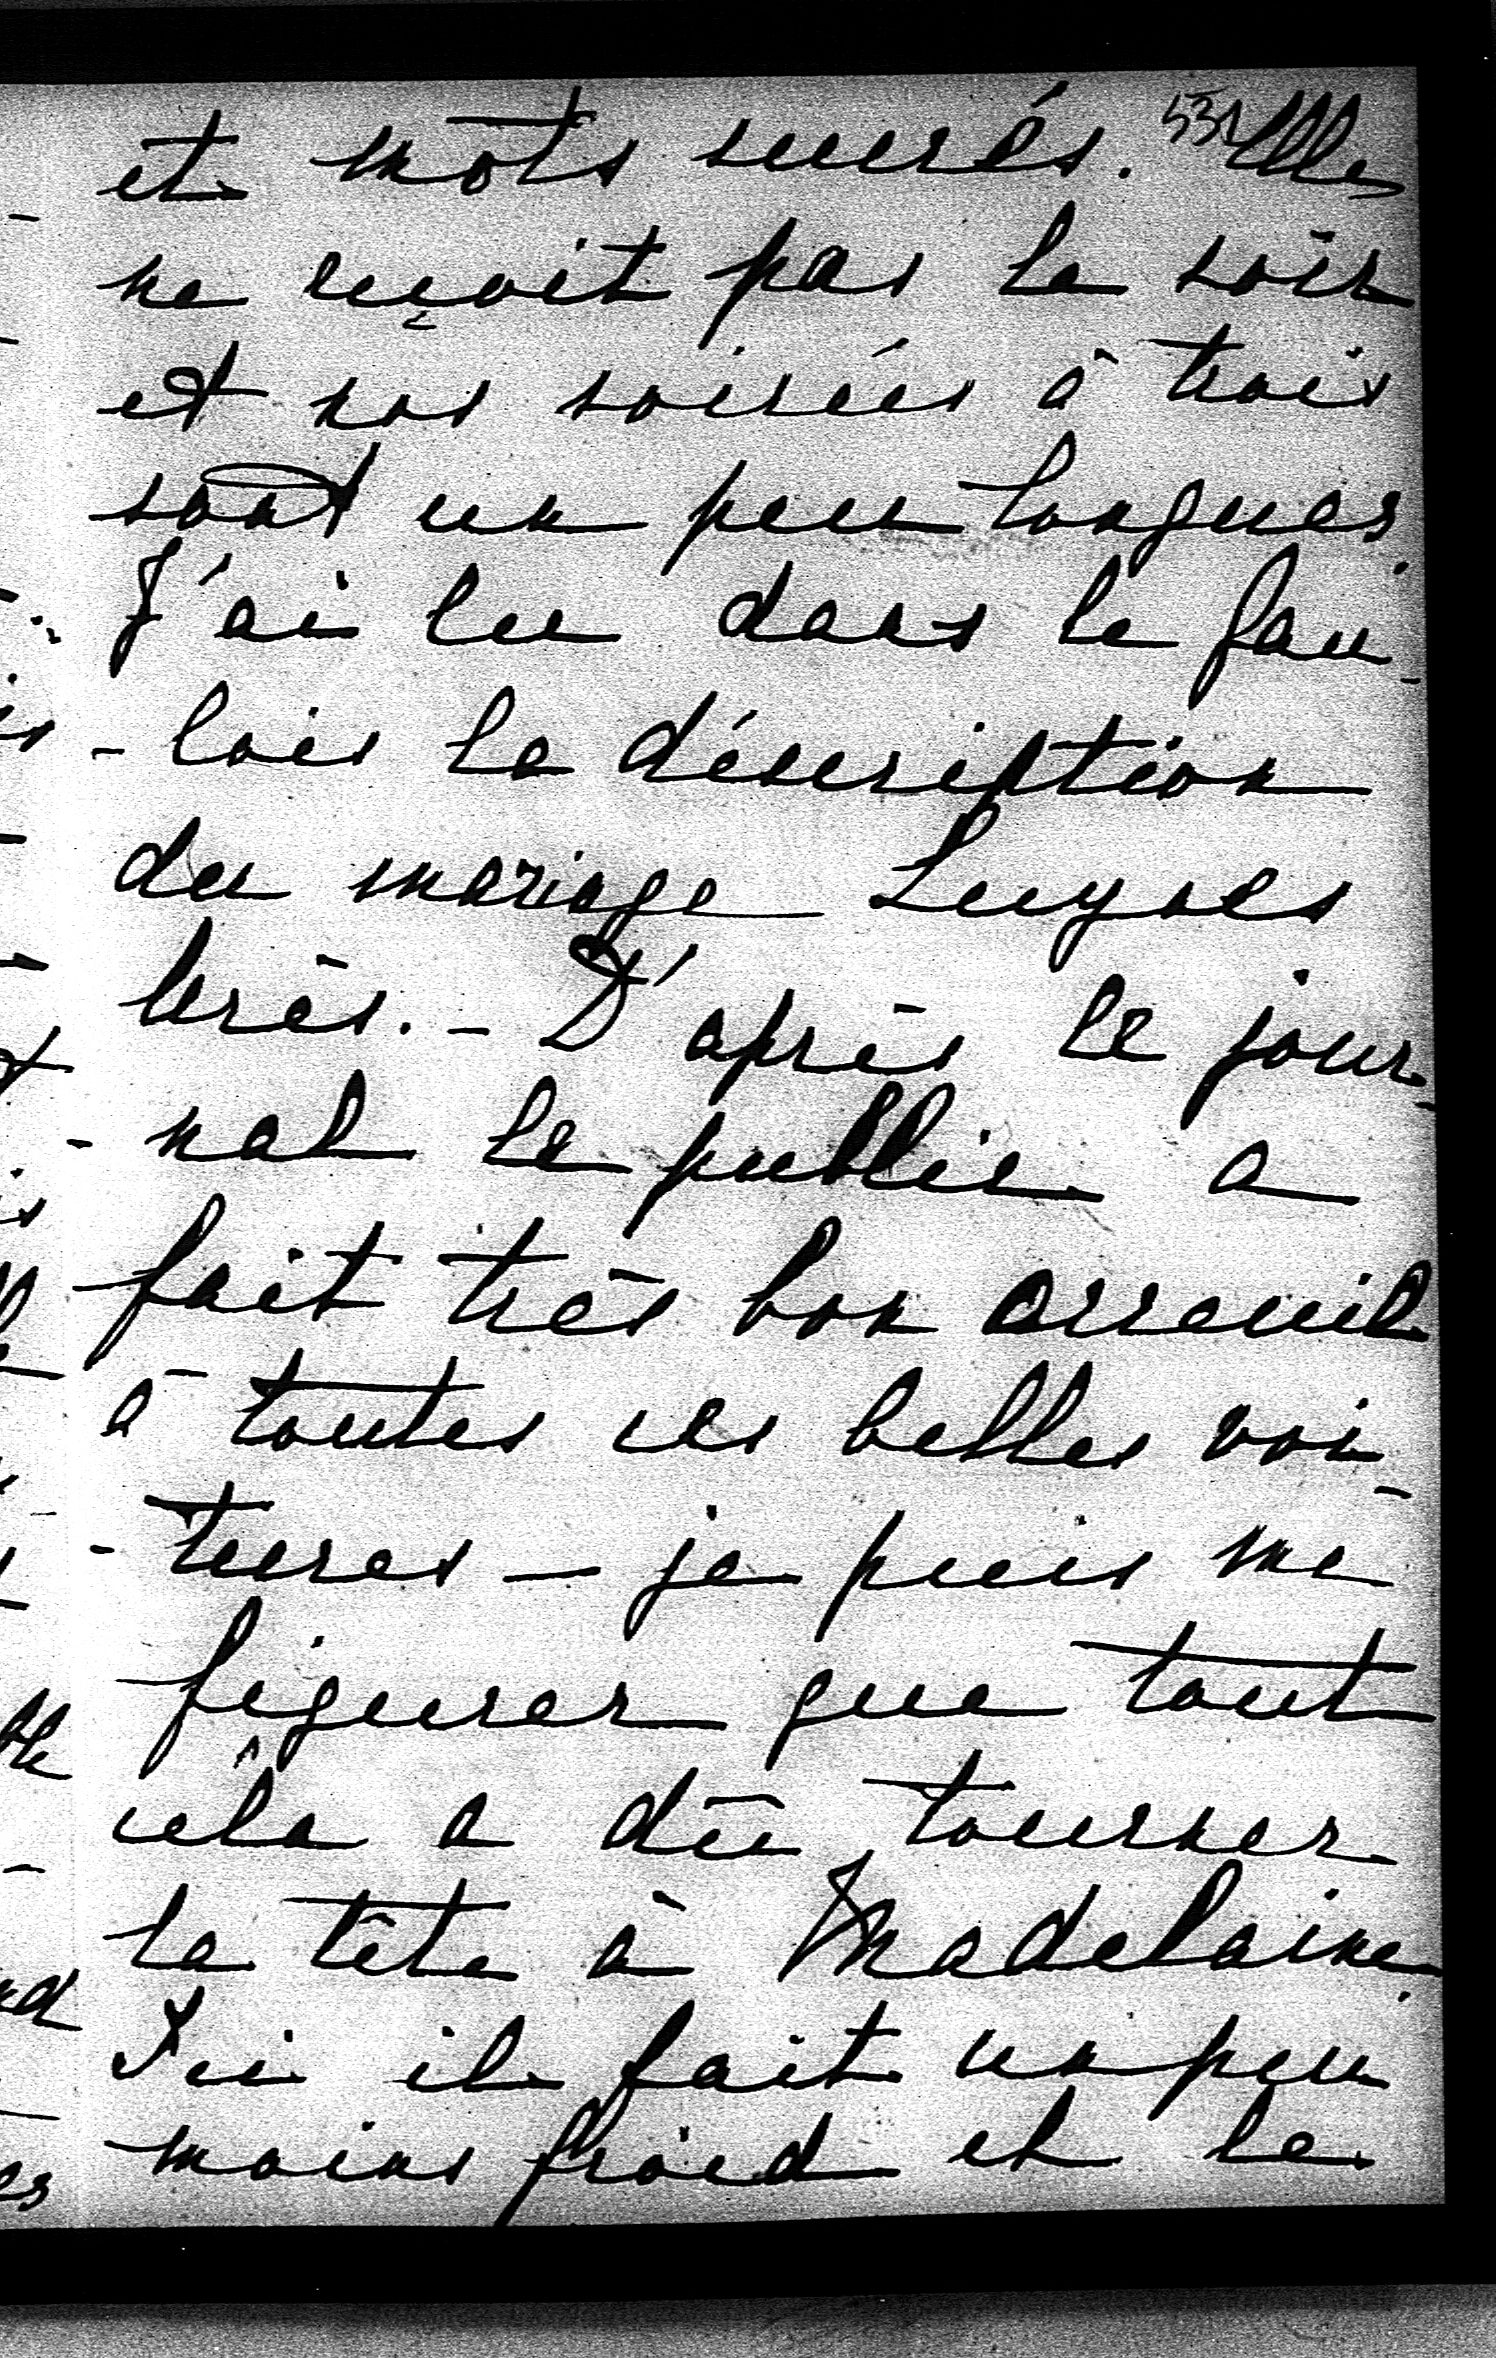 531
et mots sucrés. Elle
ne reçoit pas le soir
et nos soirées à trois
sont un peu longues.
J'ai lu dans le Gau-
-lois la description
du mariage Luynes
Uzès. - D'après le jour-
-nal le public a
fait très bon accueil
à toutes ces belles voi-
-tures - je puis me
figurer que tout
celà a dû tourner
la tête à Madelaine.
Ici il fait un peu
moins froid et le